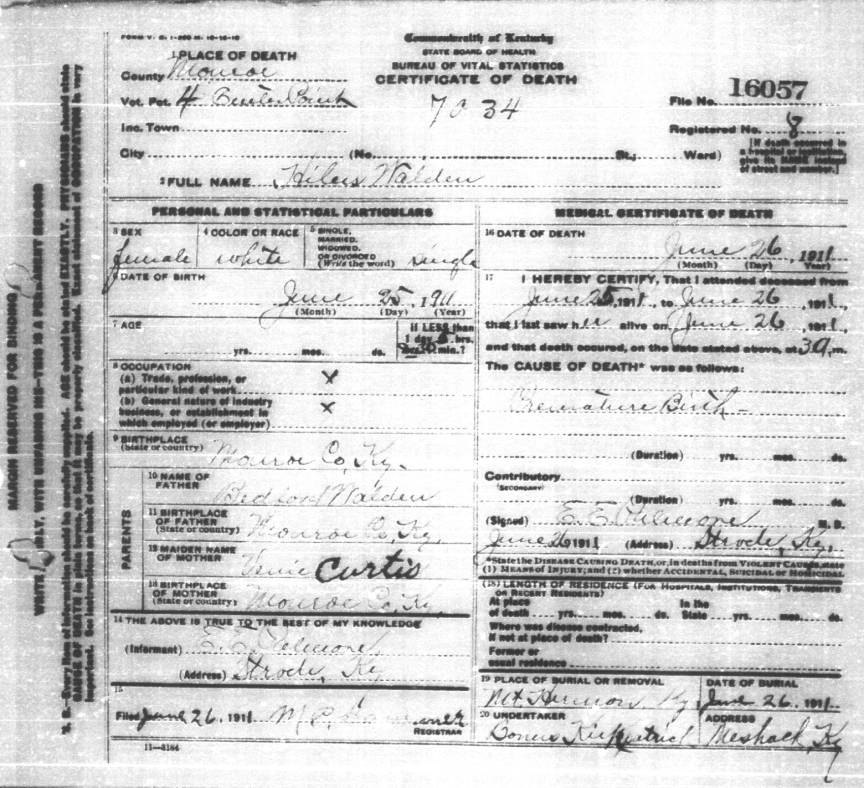 FORM V. S. 1-
Commonwealth of Kentucky
STATE BOARD OF HEALTH
BUREAU OF VITAL STATISTICS
CERTIFICATE OF DEATH
1 PLACE OF DEATH
County Monroe
Vot. Pct. 4
Inc. Town
City (No. St.; Ward)
7034
File No. 16057
Registered No. 8
[If death occurred in a hospital or institution give its NAME instead of street and number.]
2 FULL NAME Walden
PERSONAL AND STATISTICAL PARTICULARS
3 SEX female
4 COLOR OR RACE white
5 SINGLE, MARRIED, WIDOWED, OR DIVORCED (Write the word) single
6 DATE OF BIRTH
June 25, 1911
(Month) (Day) (Year)
7 AGE
yrs. mos. ds.
If LESS than 1 day hrs. or min.?
8 OCCUPATION
(a) Trade, profession, or particular kind of work X
(b) General nature of industry business, or establishment in which employed (or employer) X
9 BIRTHPLACE (State or country) Monroe Co, Ky.
PARENTS
10 NAME OF FATHER Bedford Walden
11 BIRTHPLACE OF FATHER (State or country) Monroe Co, Ky.
12 MAIDEN NAME OF MOTHER Curtis
13 BIRTHPLACE OF MOTHER (State or country) Monroe Co, Ky
14 THE ABOVE IS TRUE TO THE BEST OF MY KNOWLEDGE
(Informant) E. E.
(Address) Strode, Ky
15
Filed June 26 1911
REGISTRAR
11—3184
MEDICAL CERTIFICATE OF DEATH
16 DATE OF DEATH
June 26, 1911
(Month) (Day) Year)
17 I HEREBY CERTIFY, That I attended deceased from
June 25, 1911, to June 26, 1911,
that I last saw her alive on June 26, 1911,
and that death occured, on the date stated above, at m.
The CAUSE OF DEATH* was as follows:
Premature Birth
(Duration) yrs. mos. ds.
Contributory
(SECONDARY)
(Duration) yrs. mos. ds.
(Signed) E. E. M. D.
June 26 1911 (Address) Strode, Ky.
*State the DISEASE CAUSING DEATH, or, in deaths from VIOLENT CAUSES, state
(1) MEANS OF INJURY; and (2) whether ACCIDENTAL, SUICIDAL or HOMICIDAL.
(18) LENGTH OF RESIDENCE (FOR HOSPITALS, INSTITUTIONS, TRANSIENTS OR RECENT RESIDENTS)
At place of death yrs. mos. ds. In the State yrs. mos. ds.
Where was disease contracted, if not at place of death?
Former or usual residence
19 PLACE OF BURIAL OR REMOVAL
Mt Hermon Ky
DATE OF BURIAL
June 26, 1911
20 UNDERTAKER
Kirkpatrick
ADDRESS
Meshack, Ky
MARGIN RESERVED FOR BINDING
WRITE PLAINLY, WITH UNFADING INK—THIS IS A PERMANENT RECORD
N. B.—Every item of information should be carefully supplied. AGE should be stated EXACTLY. PHYSICIANS should state
CAUSE OF DEATH in plain terms, so that it may be properly classified. Exact statement of OCCUPATION is very
important. See instructions on back of certificate.